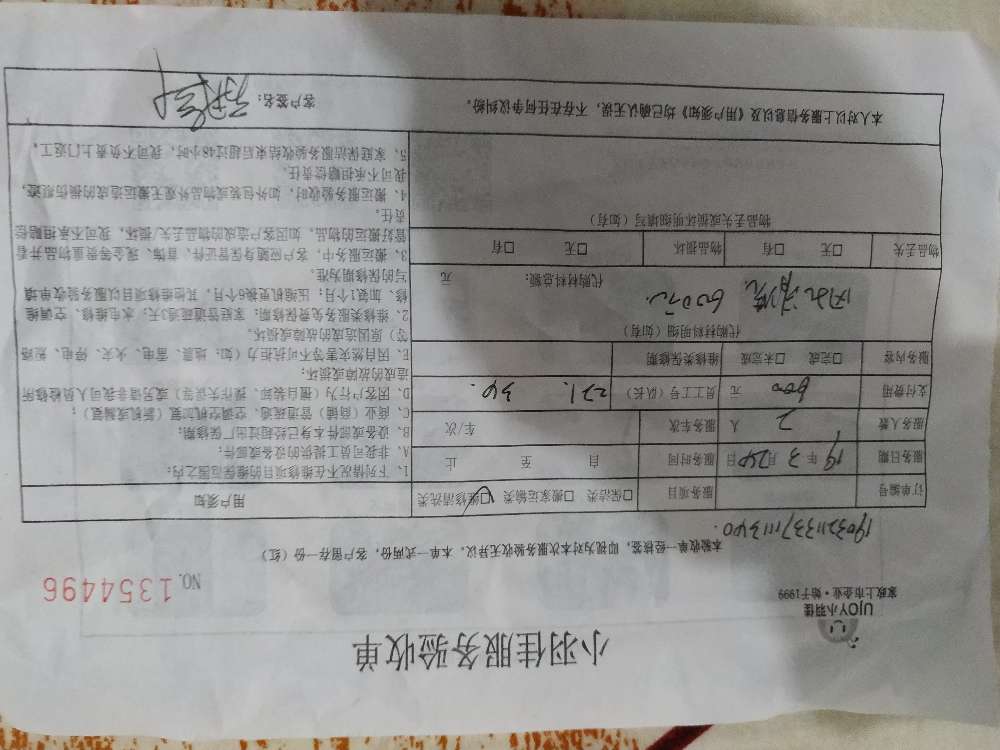 小羽佳服务验收单
UJOY小羽佳
家政上市企业·始于1999
NO.1354496
本验收单一经核签,即视为对本次服务验收无异议。本单一式两份,客户留存一份(红)
订单编号
服务项目 □保洁类 □搬家运输类 □维修清洗类
服务日期 19年3月24日 服务时间 自 至 止
服务人数 2 人 服务车次 车/次
支付费用 600 元 员工工号(队长) 271. 34.
服务内容 □完成 □未完成 维修类保修期
代购材料明细(如有)
600元.
代购材料总额: 元
物品丢失 □无 □有 物品损坏 □无 □有
物品丢失或损坏明细填写(如有)
用户须知
1、下列情况不在维修项目的维保范围之内:
A、非我司员工提供的设备或部件;
B、设备或部件本身已经超过出厂保修期;
C、商业(商铺)管道疏通、空调空机加氟(新机或漏氟);
D、因客户行为(擅自装卸、操作失误等)或另请非我司人员检修所
造成的故障或损坏;
E、因自然灾害等不可抗拒力(如:地震、雷电、火灾、停电、怠工
等)原因造成的故障或损坏。
2、维修类服务免费保修期:家庭管道疏通3天;水电维修、空调维
修、加氟1个月;压缩机更换6个月,其他维修项目以服务验收单填
写的保修期为准。
3、搬运服务中,客户应随身保管证件、首饰、现金等贵重物品并看
管好搬运的物品,如因客户造成的物品丢失/损坏,我司不承担赔偿
责任。
4、搬运服务验收时,如外包装或物品外观无搬运造成的损伤痕迹,
我司不承担赔偿责任。
5、家庭保洁服务验收结束后超过48小时,我司不负责上门返工。
本人对以上服务信息以及《用户须知》均已确认无误,不存在任何争议纠纷。
客户签名: